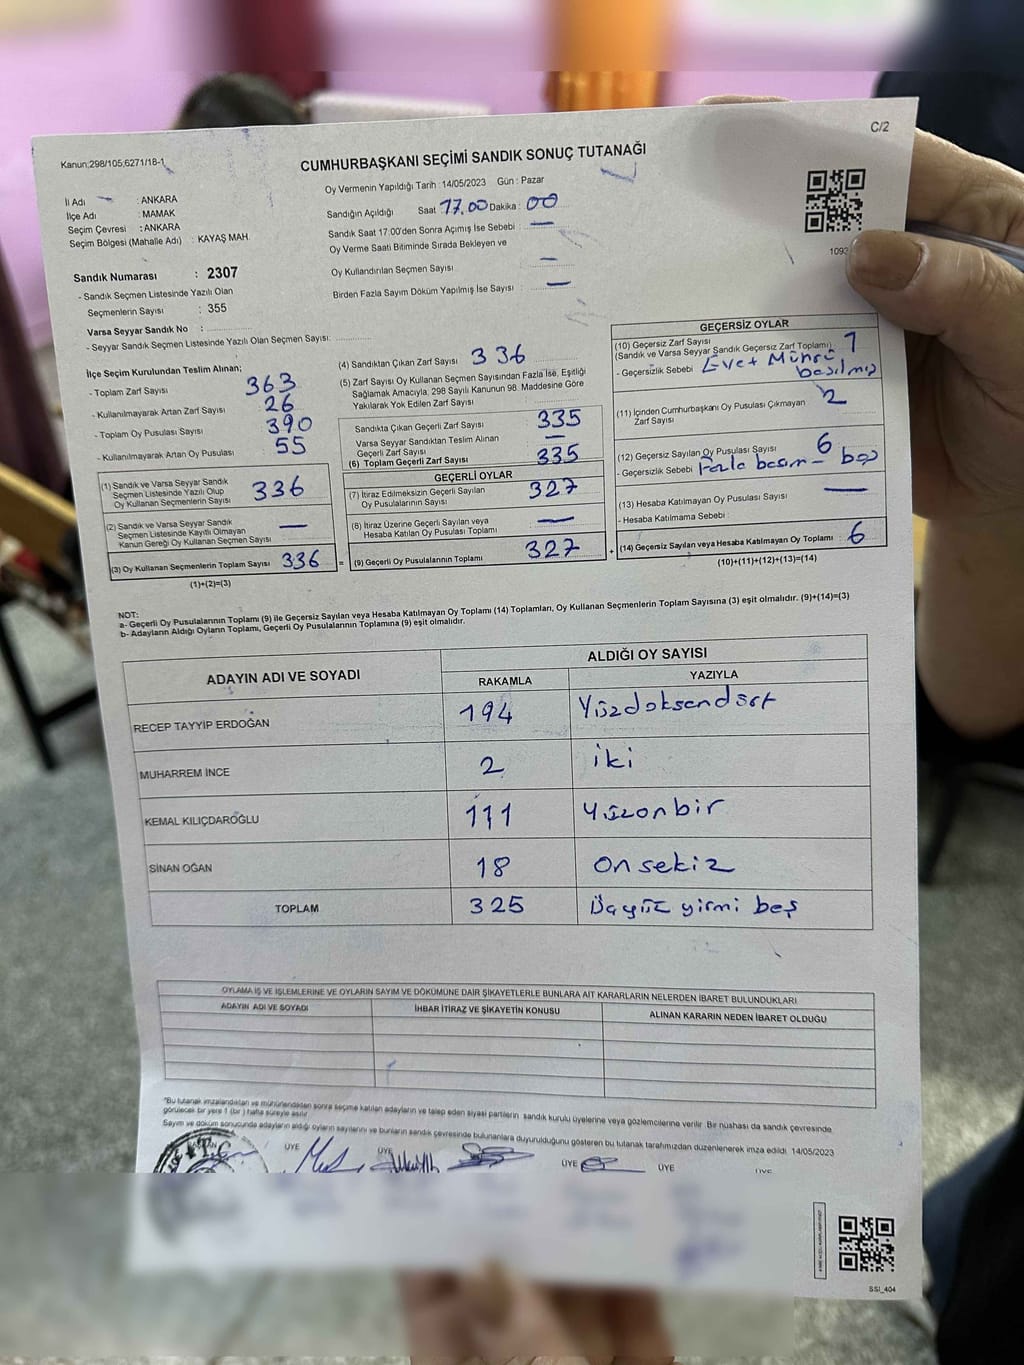 C/2
Kanun:298/105,6271/18-1
CUMHURBAŞKANI SEÇİMİ SANDIK SONUÇ TUTANAĞI
İl Adı : ANKARA
İlçe Adı : MAMAK
Seçim Çevresi : ANKARA
Seçim Bölgesi (Mahalle Adı) : KAYAŞ MAH.
Sandık Numarası : 2307
- Sandık Seçmen Listesinde Yazılı Olan
Seçmenlerin Sayısı : 355
Varsa Seyyar Sandık No :
- Seyyar Sandık Seçmen Listesinde Yazılı Olan Seçmen Sayısı:
Oy Vermenin Yapıldığı Tarih : 14/05/2023 Gün : Pazar
Sandığın Açıldığı Saat 17.00 Dakika : 00
Sandık Saat 17:00'den Sonra Açımış İse Sebebi : —
Oy Verme Saati Bitiminde Sırada Bekleyen ve
Oy Kullandırılan Seçmen Sayısı —
Birden Fazla Sayım Döküm Yapılmış İse Sayısı : —
1093
İlçe Seçim Kurulundan Teslim Alınan;
- Toplam Zarf Sayısı 363
- Kullanılmayarak Artan Zarf Sayısı 26
- Toplam Oy Pusulası Sayısı 390
- Kullanılmayarak Artan Oy Pusulası 55
(1) Sandık ve Varsa Seyyar Sandık
Seçmen Listesinde Yazılı Olup
Oy Kullanan Seçmenlerin Sayısı 336
(2) Sandık ve Varsa Seyyar Sandık
Seçmen Listesinde Kayıtlı Olmayan
Kanun Gereği Oy Kullanan Seçmen Sayısı —
(3) Oy Kullanan Seçmenlerin Toplam Sayısı 336
(1)+(2)=(3)
(4) Sandıktan Çıkan Zarf Sayısı 336
(5) Zarf Sayısı Oy Kullanan Seçmen Sayısından Fazla İse, Eşitliği
Sağlamak Amacıyla, 298 Sayılı Kanunun 98. Maddesine Göre
Yakılarak Yok Edilen Zarf Sayısı
Sandıkta Çıkan Geçerli Zarf Sayısı 335
Varsa Seyyar Sandıktan Teslim Alınan
Geçerli Zarf Sayısı —
(6) Toplam Geçerli Zarf Sayısı 335
GEÇERLİ OYLAR
(7) İtiraz Edilmeksizin Geçerli Sayılan
Oy Pusulalarının Sayısı 327
(8) İtiraz Üzerine Geçerli Sayılan veya
Hesaba Katılan Oy Pusulası Toplamı —
= (9) Geçerli Oy Pusulalarının Toplamı 327
GEÇERSİZ OYLAR
(10) Geçersiz Zarf Sayısı
(Sandık ve Varsa Seyyar Sandık Geçersiz Zarf Toplamı) 1
- Geçersizlik Sebebi Evet Mührü
basılmış
(11) İçinden Cumhurbaşkanı Oy Pusulası Çıkmayan
Zarf Sayısı 2
(12) Geçersiz Sayılan Oy Pusulası Sayısı 6
- Geçersizlik Sebebi Fazla basım - boş
(13) Hesaba Katılmayan Oy Pusulası Sayısı —
- Hesaba Katılmama Sebebi :
+ (14) Geçersiz Sayılan veya Hesaba Katılmayan Oy Toplamı 6
(10)+(11)+(12)+(13)=(14)
NOT:
a- Geçerli Oy Pusulalarının Toplamı (9) ile Geçersiz Sayılan veya Hesaba Katılmayan Oy Toplamı (14) Toplamları, Oy Kullanan Seçmenlerin Toplam Sayısına (3) eşit olmalıdır. (9)+(14)=(3)
b- Adayların Aldığı Oyların Toplamı, Geçerli Oy Pusulalarının Toplamına (9) eşit olmalıdır.
ADAYIN ADI VE SOYADI ALDIĞI OY SAYISI
RAKAMLA YAZIYLA
RECEP TAYYİP ERDOĞAN 194 Yüzdoksandört
MUHARREM İNCE 2 iki
KEMAL KILIÇDAROĞLU 111 Yüzonbir
SİNAN OĞAN 18 onsekiz
TOPLAM 325 Üçyüz yirmi beş
OYLAMA İŞ VE İŞLEMLERİNE VE OYLARIN SAYIM VE DÖKÜMÜNE DAİR ŞİKAYETLERLE BUNLARA AİT KARARLARIN NELERDEN İBARET BULUNDUKLARI
ADAYIN ADI VE SOYADI İHBAR İTİRAZ VE ŞİKAYETİN KONUSU ALINAN KARARIN NEDEN İBARET OLDUĞU
"Bu tutanak imzalandıktan ve mühürlendikten sonra seçime katılan adayların ve talep eden siyasi partilerin sandık kurulu üyelerine veya gözlemcilerine verilir. Bir nüshası da sandık çevresinde
görülecek bir yere 1 (bir) hafta süreyle asılır.
Sayım ve döküm sonucunda adayların aldığı oyların sayılarını ve bunların sandık çevresinde bulunanlara duyurulduğunu gösteren bu tutanak tarafımızdan düzenlenerek imza edildi. 14/05/2023
T.C. ÜYE ÜYE ÜYE ÜYE ÜYE
SSI_404